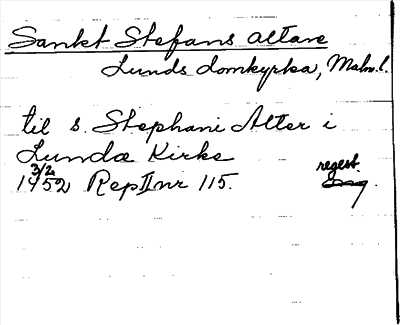 Sankt Stefans altare
Lunds domkyrka, Malm.l.
til s. Stephani Alter i
Lundæ Kirke
3/2 regest.
1452 Rep II nr 115.